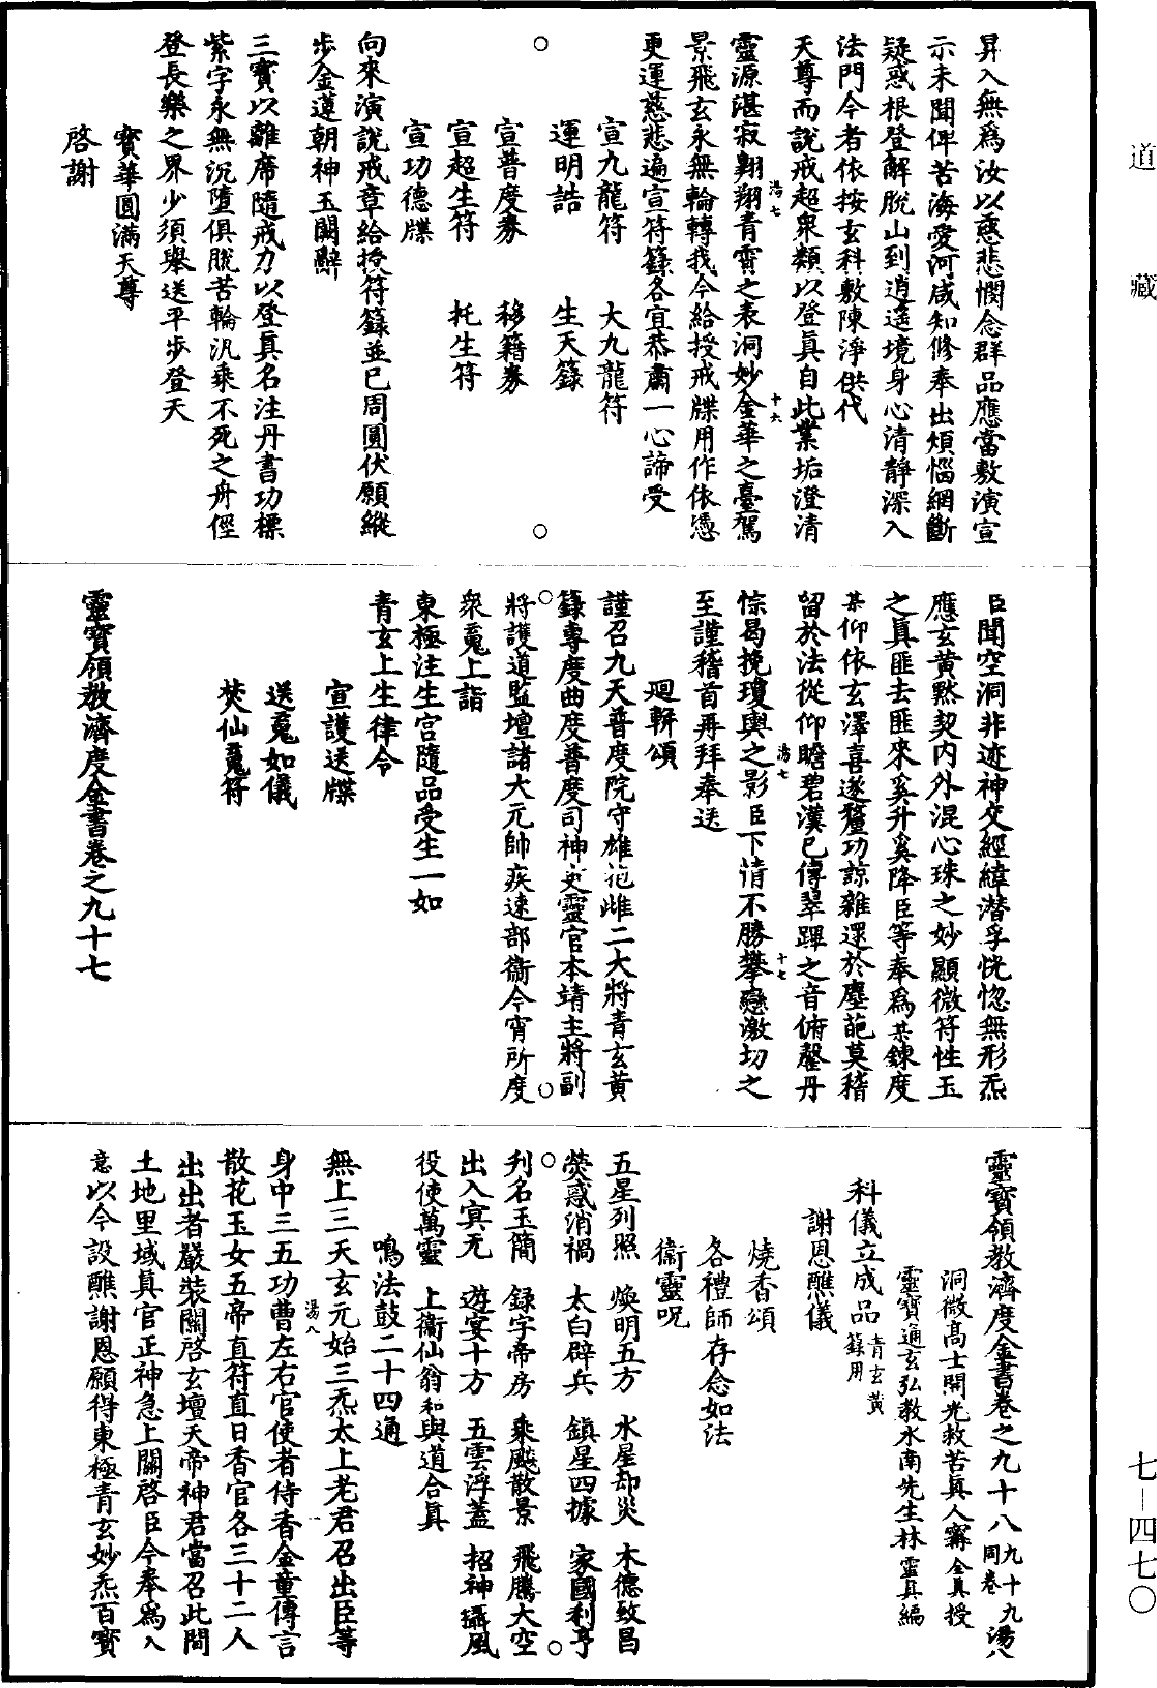 道藏
七—四七〇
昇入無爲汝以慈悲憫念群品應當敷演宣
示未聞俾苦海愛河咸知修奉出煩惱網斷
疑惑根登解脫山到逍遙境身心清靜深入
法門今者依按玄科敷陳淨供代
天尊而說戒超衆類以登眞自此業垢澄清
靈源湛寂翺翔青霄之表洞妙金華之臺駕
景飛玄永無輪轉我今給授戒牒用作依憑
更運慈悲遍宣符籙各宜恭肅一心諦受
宣九龍符　大九龍符
運明誥　生天籙
宣普度券　移籍券
宣超生符　托生符
宣功德牒
向來演說戒章給授符籙並已周圓伏願縱
步金道朝神玉闕辭
三寶以離席隨戒力以登眞名注丹書功標
紫字永無沉墮俱脫苦輪汎乘不死之舟徑
登長樂之界少須舉送平步登天
寶華圓滿天尊
啓謝
臣聞空洞非迹神交經緯潜孚恍惚無形炁
應玄黄默契内外混心珠之妙顯微符性玉
之眞匪去匪來奚升奚降臣等奉爲某鍊度
某仰依玄澤喜遂釐功諒難還於麈葩莫稽
留於法從仰瞻碧漢已傳翠蹕之音俯罄丹
悰曷挽瓊輿之影臣下情不勝攀戀激切之
至謹稽首再拜奉送
迴軿頌
謹召九天普度院守雄抱雌二大將青玄黄
籙專度曲度普度司神吏靈官本靖主將副
將護道監壇諸大元帥疾速部衞今宵所度
衆䰟上詣
東極注生宫隨品受生一如
青玄上生律令
宣護送牒
送䰟如儀
焚仙䰟符
靈寶領教濟度金書卷之九十七
靈寶領教濟度金書卷之九十八　九十九同卷　湯八
洞微高士開光救苦眞人寗全眞授
靈寶通玄弘教水南先生林靈眞編
科儀立成品　青玄黄籙用
謝恩醮儀
燒香頌
各禮師存念如法
衞靈呪
五星列照　煥明五方　水星却災　木德致昌
熒惑消禍　太白辟兵　鎮星四據　家國利亨
刋名玉簡　録字帝房　乘飈散景　飛騰大空
出入冥无　遊宴十方　五雲浮蓋　招神攝風
役使萬靈　上衞仙翁　和與道合眞
鳴法鼓二十四通
無上三天玄元始三炁太上老君召出臣等
身中三五功曹左右官使者侍香金童傳言
散花玉女五帝直符直日香官各三十二人
出出者嚴裝關啓玄壇天帝神君當召此間
土地里域眞官正神急上關啓臣今奉爲入
意以今設醮謝恩願得東極青玄妙炁百寳